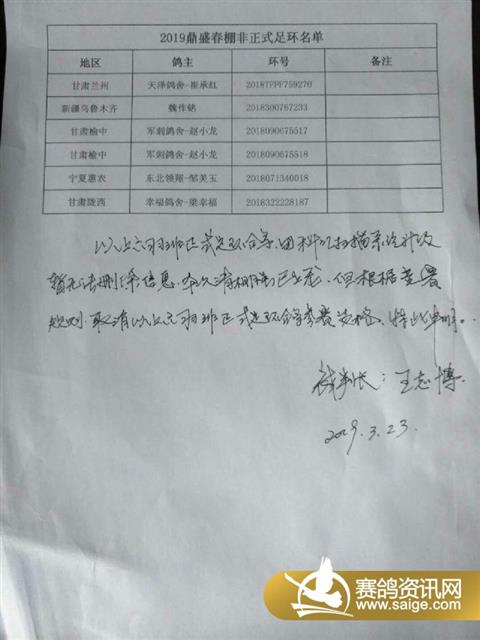 2019鼎盛春棚非正式足环名单
地区 鸽主 环号 备注
甘肃兰州 天泽鸽舍-崔承红 2018TFPF759270
新疆乌鲁木齐 魏作铭 2018300767233
甘肃榆中 军刺鸽舍-赵小龙 2018090675517
甘肃榆中 军刺鸽舍-赵小龙 2018090675518
宁夏惠农 东北领翔-邹美玉 2018071340018
甘肃陇西 幸福鸽舍-梁幸福 2018322228187
以上六羽非正式足环合字,因科汇扫描系统升级
暂无法删除信息,本次清棚制已生成,但根据竞赛
规则,取消以上六羽非正式足环合字参赛资格,特此申明。
裁判长:王志博
2019.3.23
赛鸽资讯网
www.saige.com